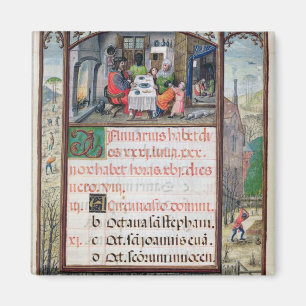 Januarius habet di
es xxxi. luna xxx.
nox habet horas xvi. dies
vero viii.
A Circuncisio domini
b Octava sci stephani.
xi. c Oct. sci ioannis eva.
d Oct. scorum innocen.